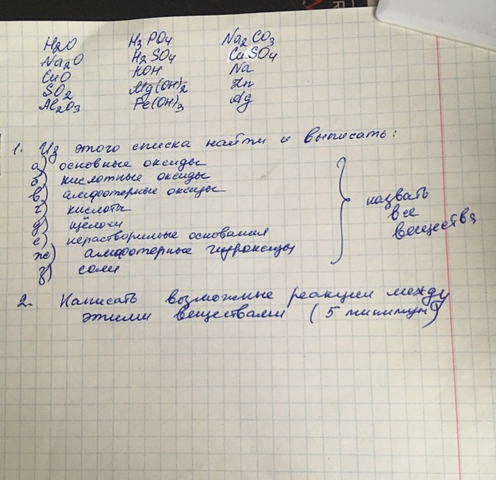 H2O H3PO4 Na2CO3
Na2O H2SO4 CuSO4
CuO KOH Na
SO2 Mg(OH)2 Zn
Al2O3 Fe(OH)3 Ag
1. Из этого списка найти и выписать:
а) основные оксиды
б) кислотные оксиды
в) амфотерные оксиды
г) кислоты
д) щёлочи
е) нерастворимые основания
ж) амфотерные гидроксиды
з) соли
назвать
все
вещества
2. Написать возможные реакции между
этими веществами (5 минимум)